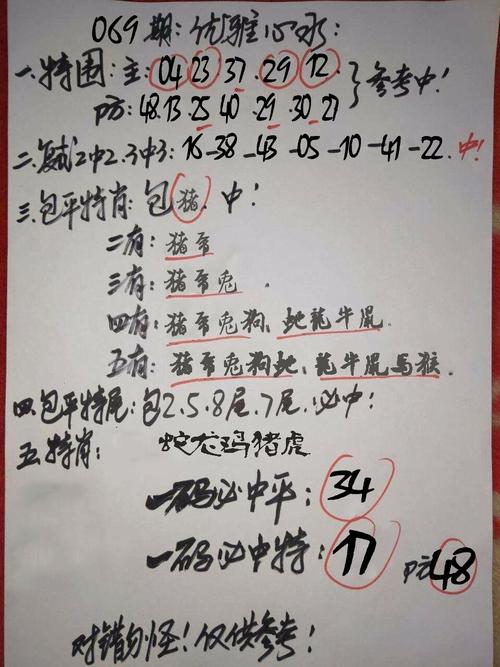 069期:优雅心水:
一.特围:主:04 23.37.29 12.}参考中!
防:48.13.25 40.29.30 27
二.复试2中2.3中3:16-38-43-05-10-41-22.中!
三.包平特肖:包猪.中!
二有:猪
三有:猪 兔.
四有:猪 兔狗、蛇龍牛鼠.
五有:猪 兔狗蛇、龍牛鼠馬猴.
四.包平特尾:包2.5.8尾.7尾.必中!
五.特肖:蛇龙鸡猪虎
一码必中平:34
一码必中特:17 防48
对错勿怪!仅供参考!